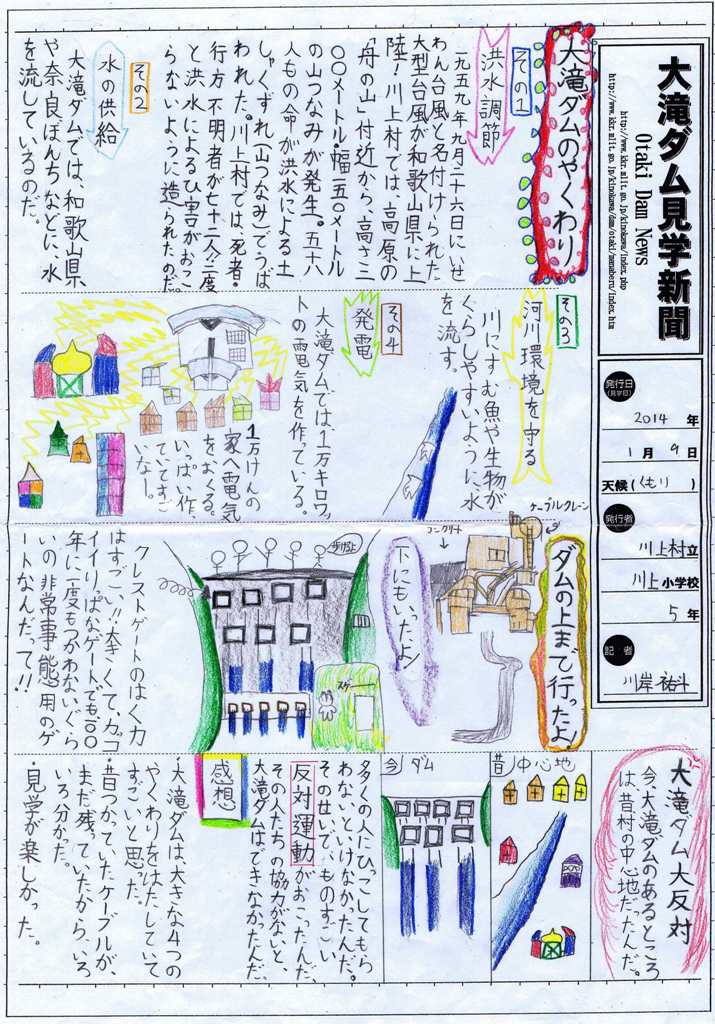 大滝ダム見学新聞
Otaki Dam News
http://www.kkr.mlit.go.jp/kinokawa/index.php
http://www.kkr.mlit.go.jp/kinokawa/dam/otaki/manaberu/index.htm
発行日
(見学日)
2014 年
1 月 9 日
天候(くもり)
発行者
川上村立
川上小学校
5 年
記者
川岸 祐斗
大滝ダムのやくわり
その1
洪水調節
一九五九年九月二十六日にいせ
わん台風と名付けられた
大型台風が和歌山県に上
陸!川上村では、高原の
「舟の山」付近から、高さ三
〇〇メートル・幅一五〇メートル
の山つなみが発生。五十八
人もの命が洪水による土
しゃくずれ(山つなみ)でうば
われた。川上村では、死者・
行方不明者が七十二人!二度
と洪水によるひ害がおこ
らないように造られたのだ
その2
水の供給
大滝ダムでは、和歌山県
や奈良ぼんちなどに、水
を流しているのだ。
その3
河川環境を守る
川にすむ魚や生物が
くらしやすいように水
を流す。
その4
発電
大滝ダムでは、1万キロワッ
トの電気を作っている。
1万けんの
家へ電気
をおくる。
いっぱい作
ていてすご
いなー。
ダムの上まで行ったよ!
ケーブルクレーン
コンクリート
下にもいったよ!
クレストゲートのはく力
はすごい!!大きくて、カッコ
イイ!りっぱなゲートでも一〇〇
年に一度もつかわないぐら
いの非常事態用のゲ
ートなんだって!!
大滝ダム大反対
今、大滝ダムのあるところ
は、昔村の中心地だったんだ。
昔 中心地
今 ダム
多くの人にひっこしてもら
わないといけなかったんだ。
そのせいで、ものすごい
反対運動がおこったんだ、
その人たちの協力がないと、
大滝ダムはできなかったんだ。
感想
・大滝ダムは、大きな4つの
やくわりをはたしていて
すごいと思った。
・昔つかっていたケーブルが、
まだ残っていたから、いろ
いろ分かった。
・見学が楽しかった。